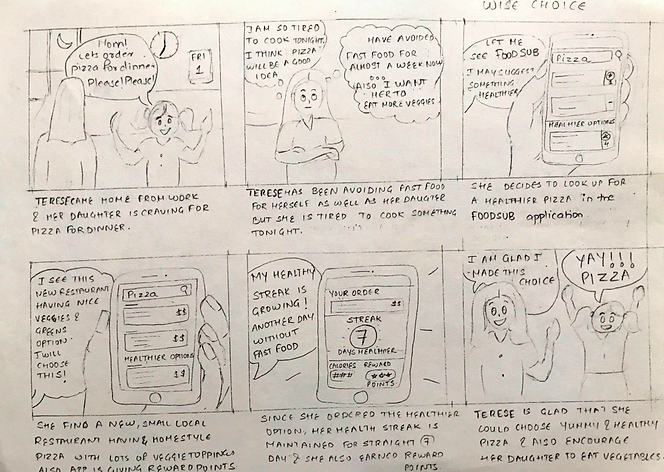 WISE CHOICE
Mom!
Lets order
pizza for dinner
Please! Please!
FRI
1
TERESE CAME HOME FROM WORK
& HER DAUGHTER IS CRAVING FOR
PIZZA FOR DINNER.
I AM SO TIRED
TO COOK TONIGHT.
I THINK PIZZA
WILL BE A GOOD
IDEA
HAVE AVOIDED
FAST FOOD FOR
ALMOST A WEEK NOW
...
ALSO I WANT
HER TO
EAT MORE VEGGIES
TERESE HAS BEEN AVOIDING FAST FOOD
FOR HERSELF AS WELL AS HER DAUGHTER
BUT SHE IS TIRED TO COOK SOMETHING
TONIGHT.
LET ME
SEE FOODSUB
I MAY SUGGEST
SOMETHING
HEALTHIER
Pizza
HEALTHIER OPTIONS
SHE DECIDES TO LOOK UP FOR
A HEALTHIER PIZZA in the
FOODSUB application.
I SEE THIS
NEW RESTAURANT
HAVING NICE
VEGGIES &
GREENS
OPTION.
I WILL
CHOOSE
THIS!
Pizza
$$
$$
HEALTHIER OPTIONS
$$
SHE FIND A NEW, SMALL LOCAL
RESTAURANT HAVING HOMESTYLE
PIZZA WITH LOTS OF VEGGIE TOPPINGS
ALSO APP IS GIVING REWARD POINTS
MY HEALTHY
STREAK IS
GROWING!
ANOTHER DAY
WITHOUT
FAST FOOD
YOUR ORDER
$$
STREAK
7
DAYS HEALTHIER
CALORIES REWARD
###
POINTS
SINCE SHE ORDERED THE HEALTHIER
OPTION, HER HEALTH STREAK IS
MAINTAINED FOR STRAIGHT 7
DAY & SHE ALSO EARNED REWARD
POINTS
I AM GLAD I
MADE THIS
CHOICE
YAY!!!
PIZZA
TERESE IS GLAD THAT SHE
COULD CHOOSE YUMMY & HEALTHY
PIZZA & ALSO ENCOURAGE
HER DAUGHTER TO EAT VEGETABLES